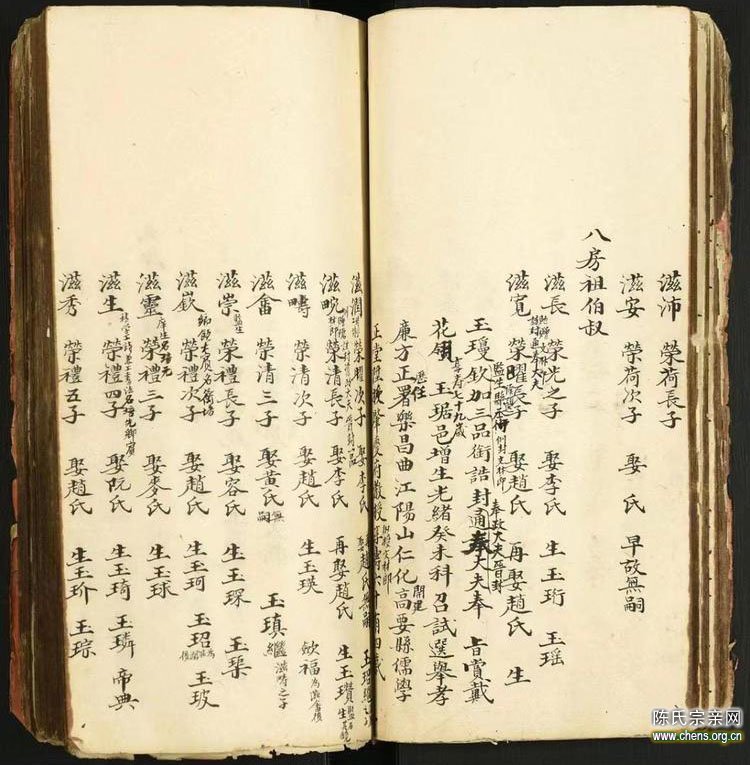 滋沛 榮荷長子
滋安 榮荷次子 娶 氏 早故無嗣
八房祖伯叔
滋長 榮 之子 娶李氏 生玉珩 玉瑤
滋寬 榮曜長子 娶趙氏 再娶趙氏 生
玉瓊欽加三品銜誥封通奉大夫奉 旨賞戴
花翎 玉琚邑增生光緒癸未科召試選舉孝
壽七十九歲
廉方正署樂昌曲江陽山仁化高要縣儒學
歷任
開建
滋潤 榮曜次子 娶李氏
滋畹 榮清長子 娶李氏 再娶趙氏 生玉瓚
滋疇 榮清次子 生玉瑛 欽福
滋畬 榮清三子 娶黃氏 無嗣 玉瑱繼滋疇之子
滋崇 監生 榮禮長子 娶容氏 生玉琛 玉琹
滋嶔 榮禮次子 娶趙氏 生玉珂 玉玿 玉玻
滋靈 榮禮三子 娶麥氏 生玉球
滋生 榮禮四子 娶阮氏 生玉琦 玉璘 帝典
滋秀 榮禮五子 娶趙氏 生玉玠 玉琮
陈氏宗亲网
www.chens.org.cn